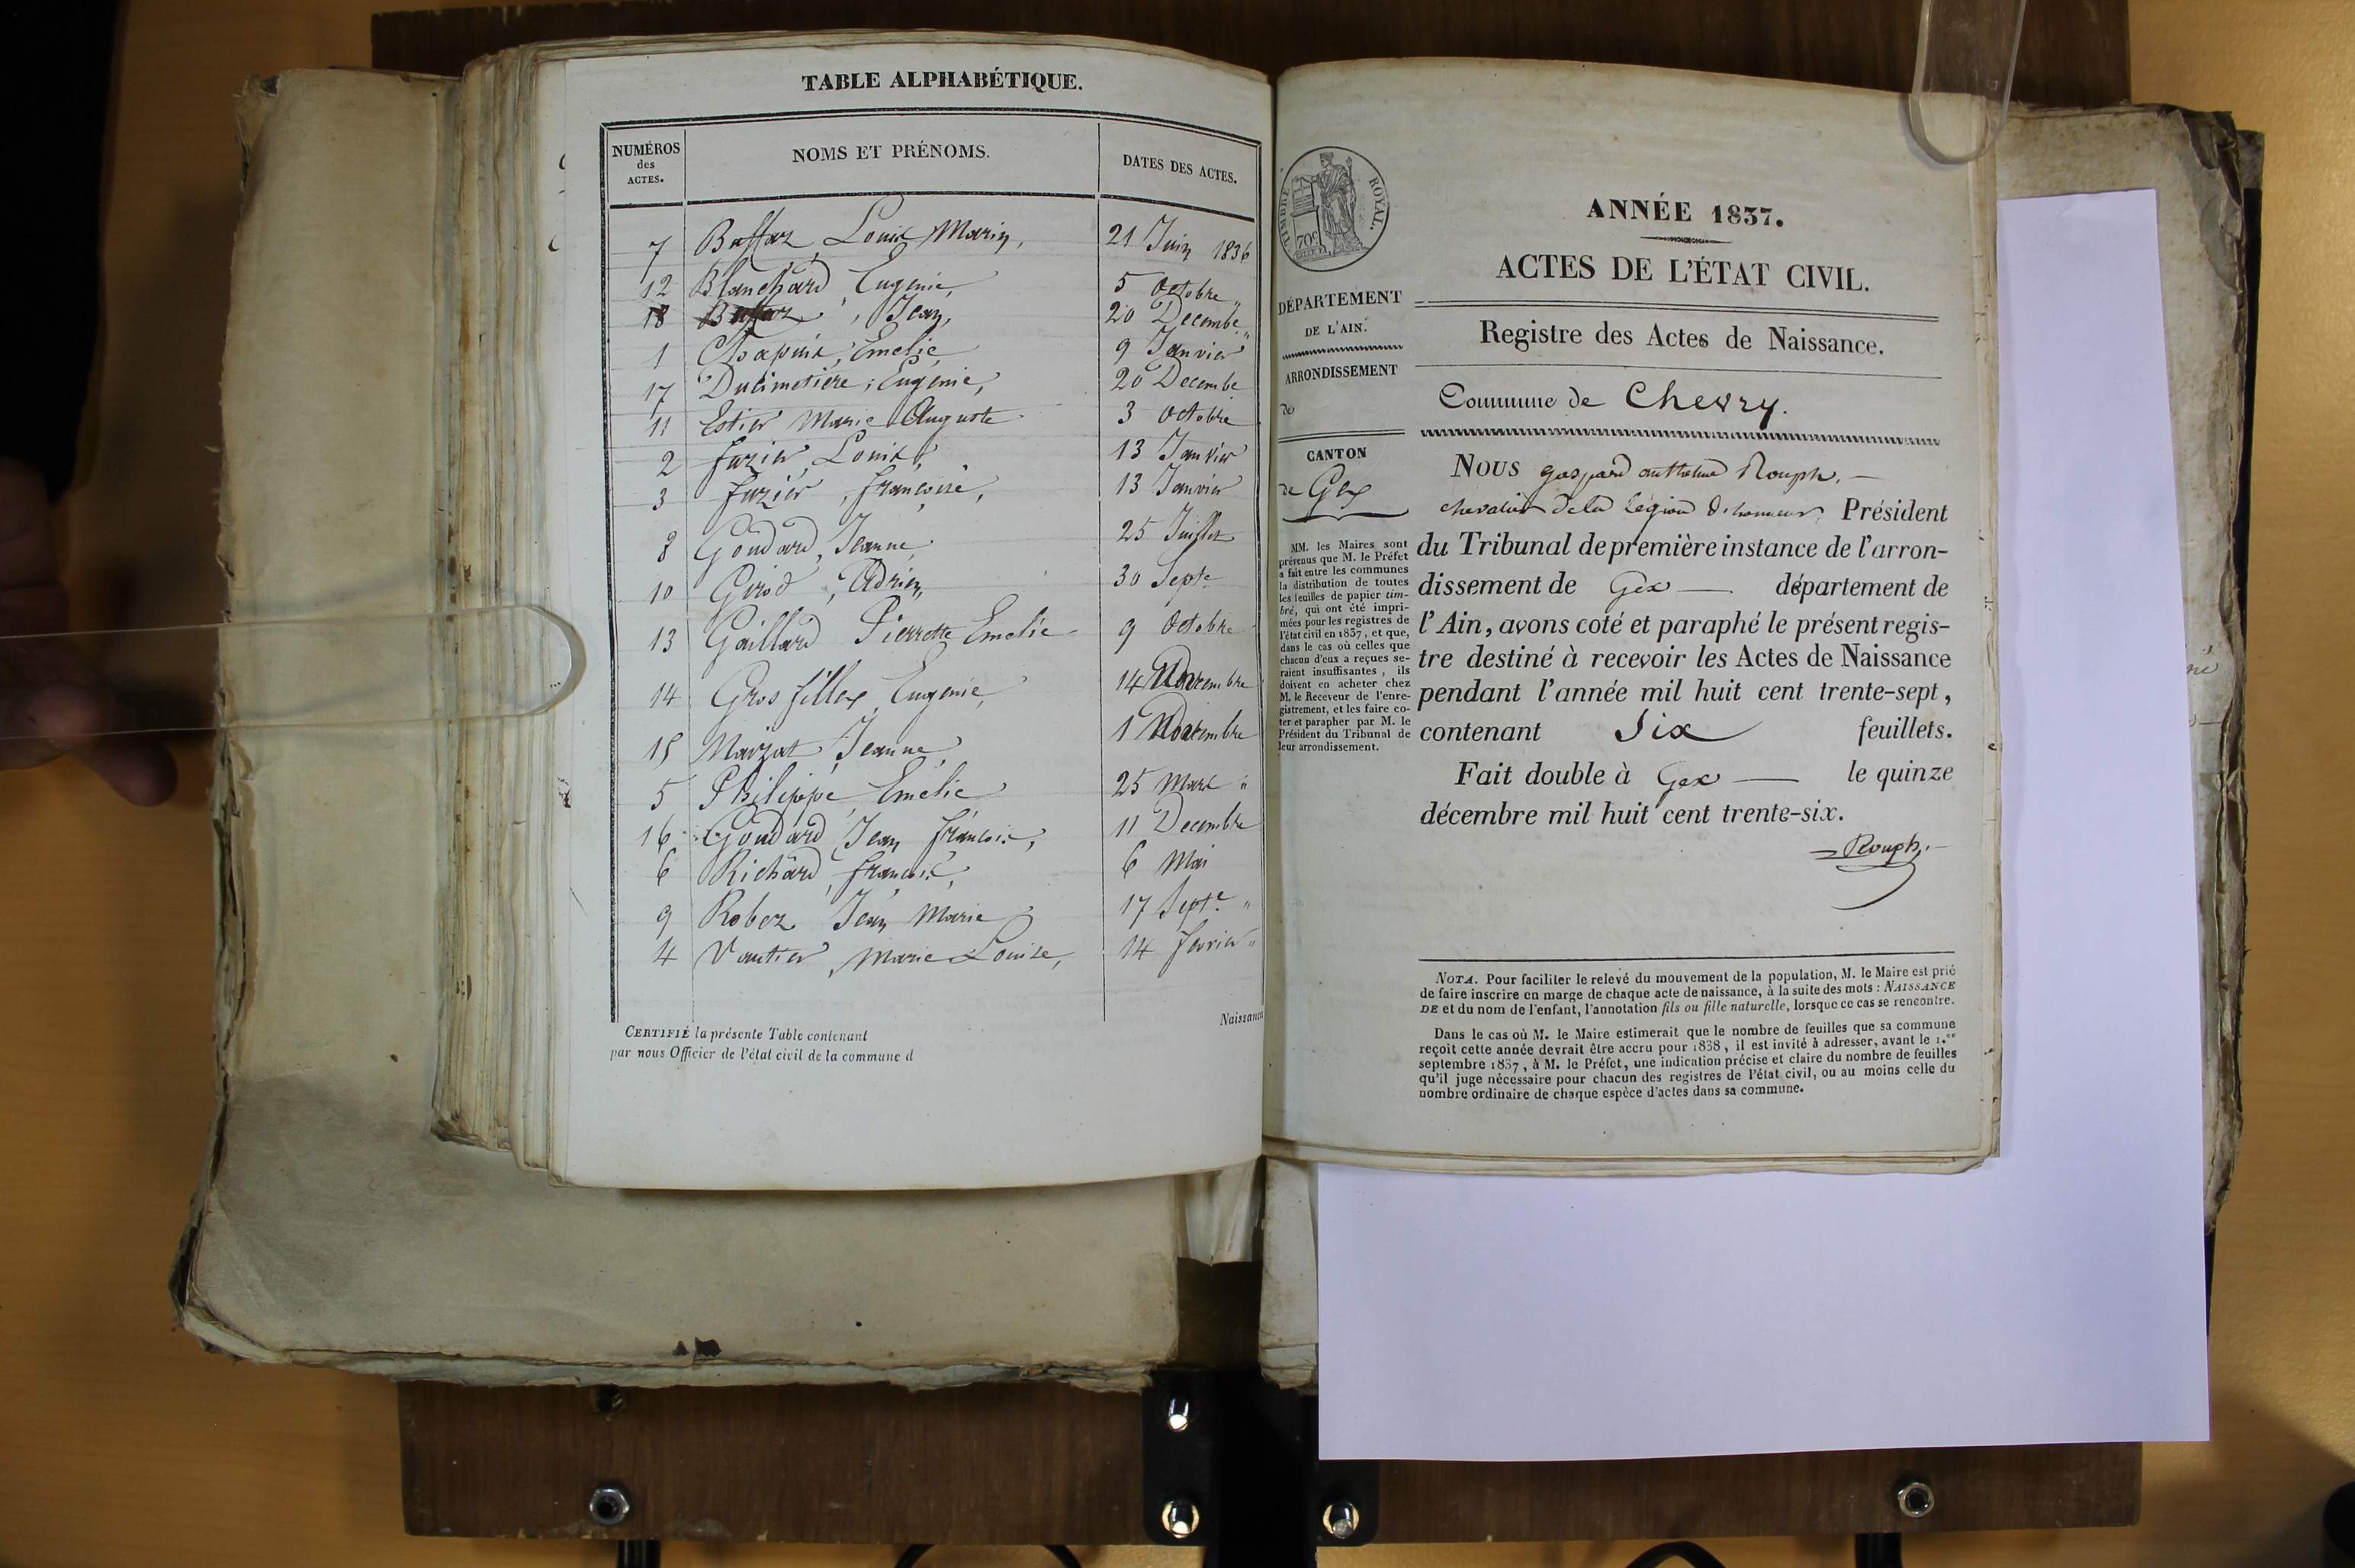 TABLE ALPHABÉTIQUE.
NUMÉROS des ACTES. NOMS ET PRÉNOMS. DATES DES ACTES.
7 Baffaz, Louis Marin, 21 Juin 1836
12 Blanchard, Eugénie, 5 Octobre "
18 , Jean, 20 Decembe "
1 Chapuis, Emelie, 9 Janvier
17 Ducimetiere, Eugenie, 20 Decembe
11 Estier Marie Auguste 3 Octobre
2 fazier, Louis, 13 Janvier
3 fazier, françoise, 13 Janvier
8 Goudard, Jeanne, 25 Juillet
10 Girod, Adrien, 30 Septe
13 Gaillard Pierrette Emelie 9 Octobre
14 Grosfillex, Eugenie, 14 Novembre
15 Marzat, Jeanne, 1 Novembre
5 Philippe, Emelie 25 Mars "
16 Goudard, Jean françois, 11 Decembre
6 Richard, francois, 6 Mai
9 Robez Jean Marie 17 Septe "
4 Vautier, Marie Louise, 14 fevrier "
Naissances
CERTIFIÉ la présente Table contenant
par nous Officier de l'état civil de la commune d
TIMBRE ROYAL.
70c
DÉPARTEMENT
DE L'AIN.
ARRONDISSEMENT
de
CANTON
de Gex
MM. les Maires sont
prévenus que M. le Préfet
a fait entre les communes
la distribution de toutes
les feuilles de papier tim-
bré, qui ont été impri-
mées pour les registres de
l'état civil en 1837, et que,
dans le cas où celles que
chacun d'eux a reçues se-
raient insuffisantes, ils
doivent en acheter chez
M. le Receveur de l'enre-
gistrement, et les faire co-
ter et parapher par M. le
Président du Tribunal de
leur arrondissement.
ANNÉE 1837.
ACTES DE L'ÉTAT CIVIL.
Registre des Actes de Naissance.
Commune de Chevry.
NOUS gaspard anthelme Rouph,
chevalier de la Légion d'honneur, Président
du Tribunal de première instance de l'arron-
dissement de Gex département de
l'Ain, avons coté et paraphé le présent regis-
tre destiné à recevoir les Actes de Naissance
pendant l'année mil huit cent trente-sept,
contenant Six feuillets.
Fait double à Gex le quinze
décembre mil huit cent trente-six.
Rouph
NOTA. Pour faciliter le relevé du mouvement de la population, M. le Maire est prié
de faire inscrire en marge de chaque acte de naissance, à la suite des mots : NAISSANCE
DE et du nom de l'enfant, l'annotation fils ou fille naturelle, lorsque ce cas se rencontre.
Dans le cas où M. le Maire estimerait que le nombre de feuilles que sa commune
reçoit cette année devrait être accru pour 1838, il est invité à adresser, avant le 1.er
septembre 1837, à M. le Préfet, une indication précise et claire du nombre de feuilles
qu'il juge nécessaire pour chacun des registres de l'état civil, ou au moins celle du
nombre ordinaire de chaque espèce d'actes dans sa commune.